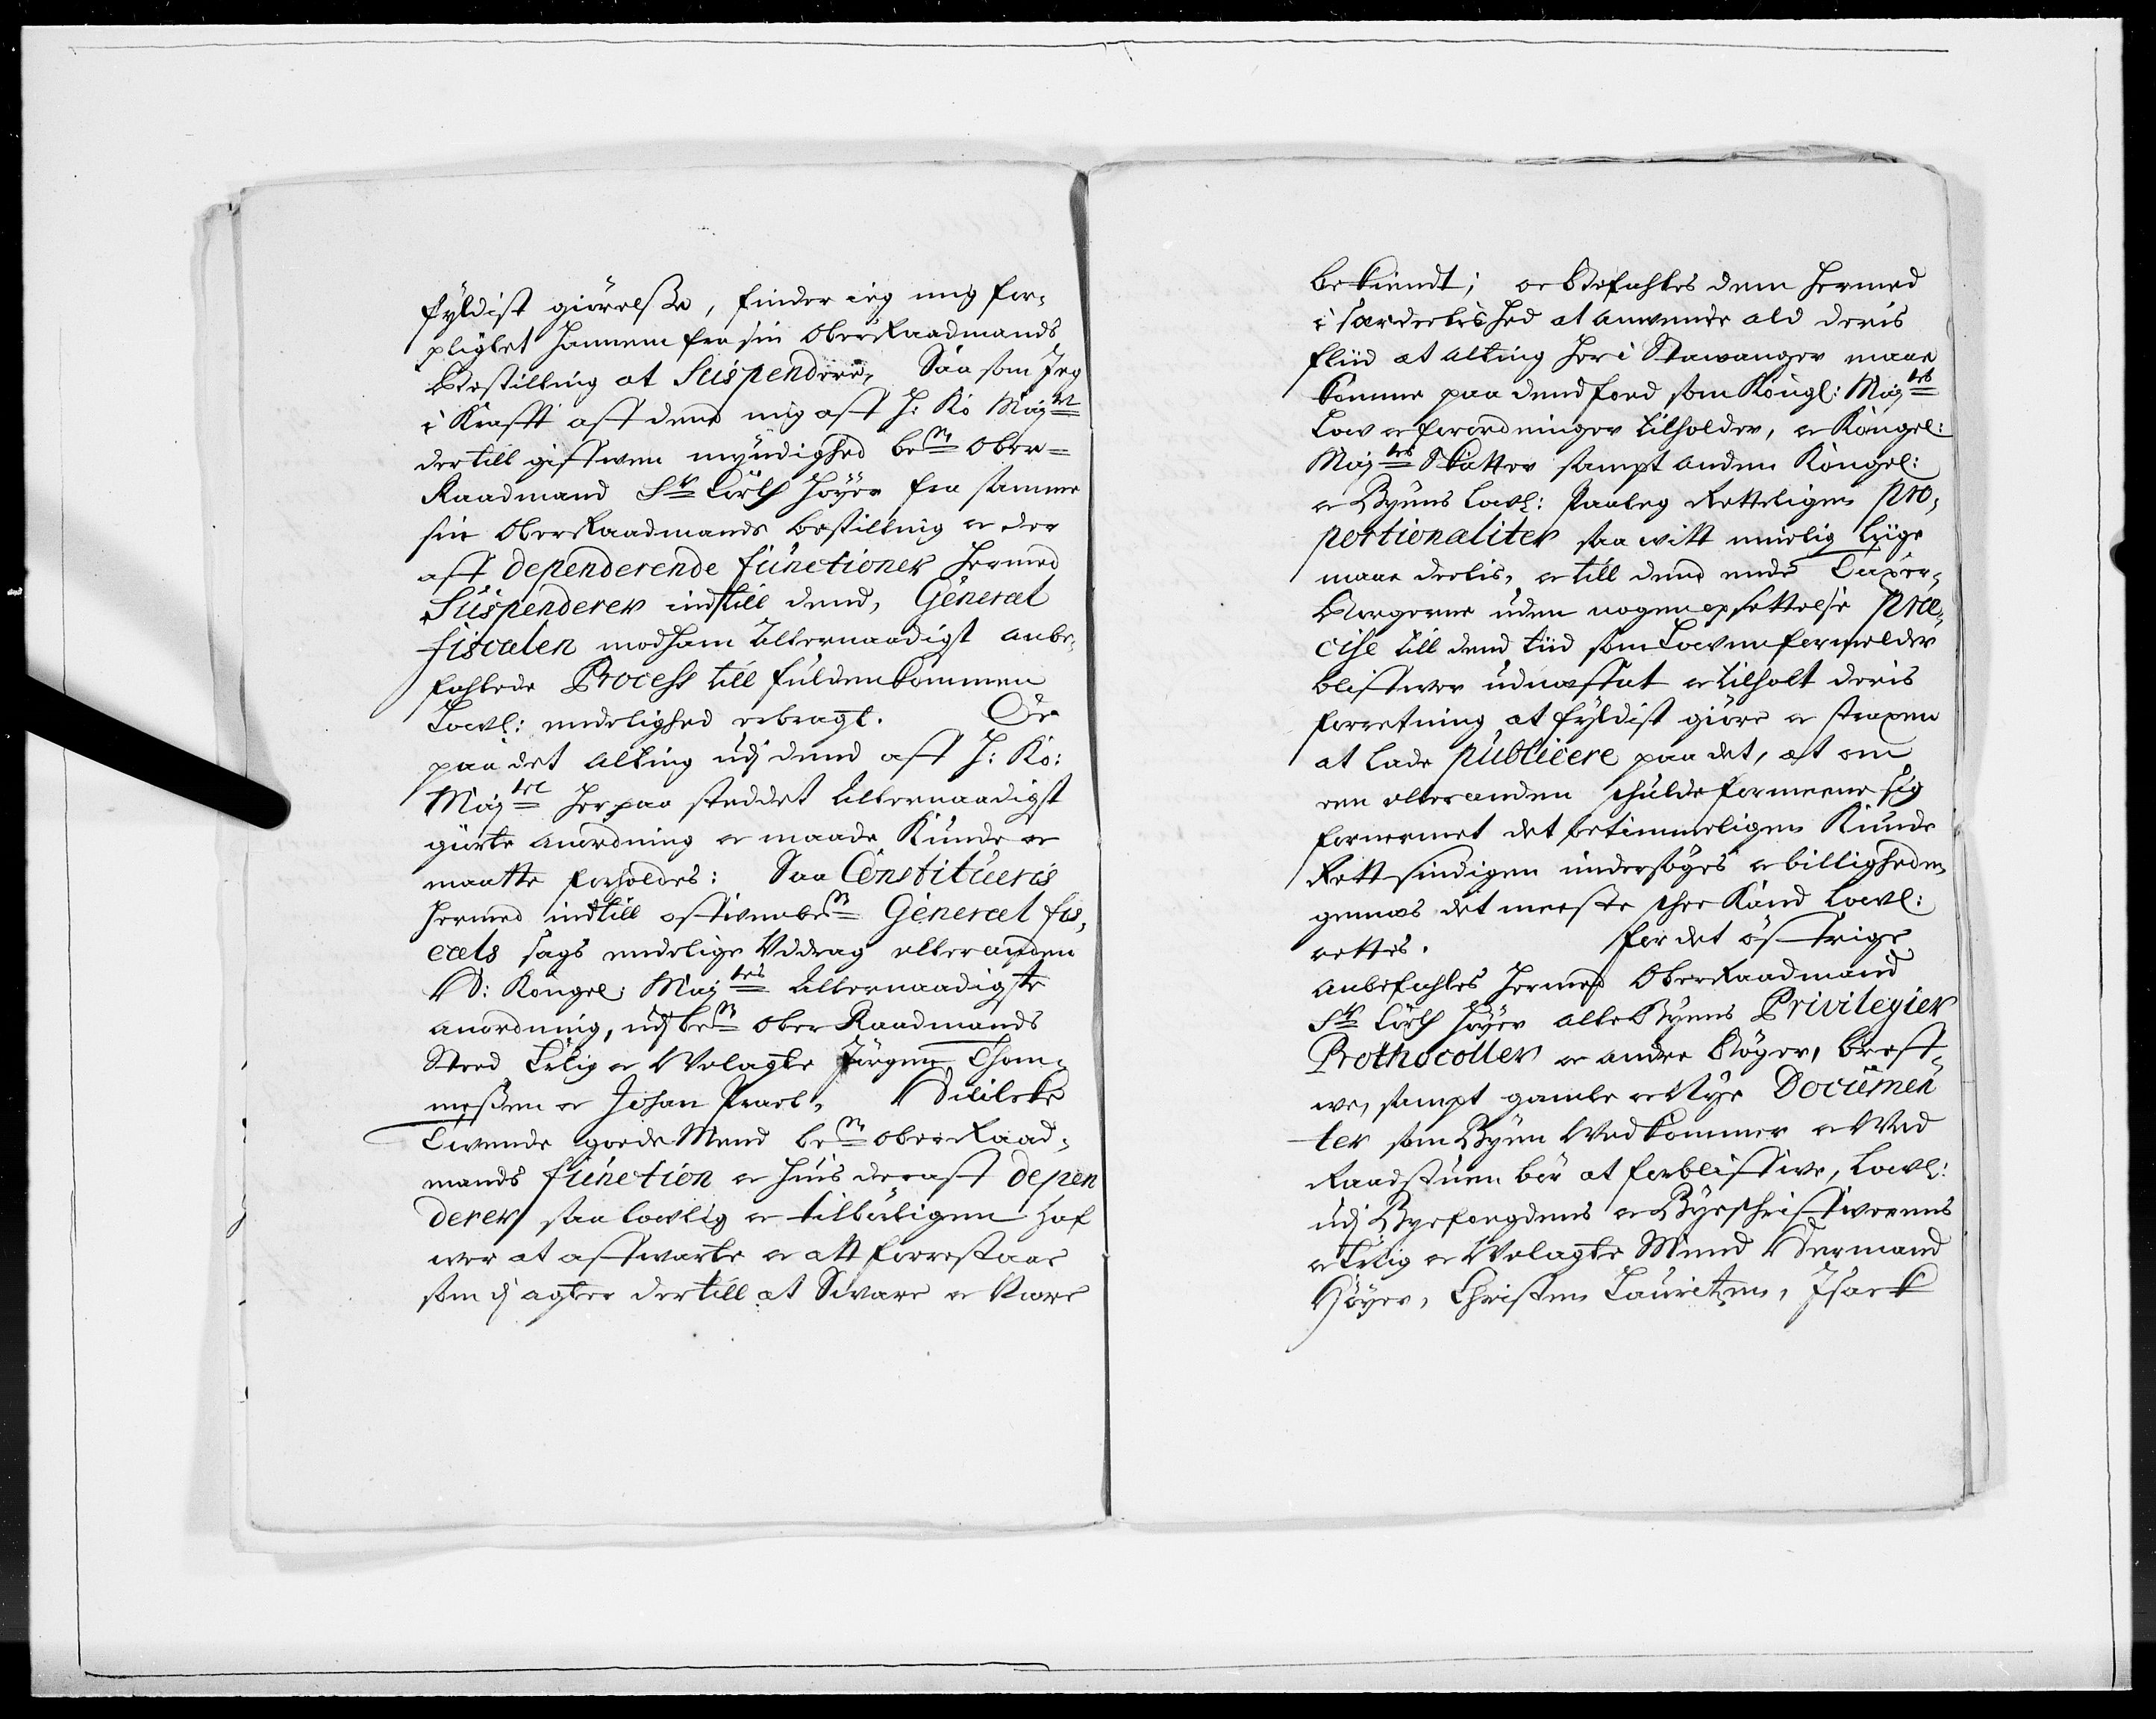 fyldist giörelse, finder ieg mig for,
pligtet hannem fra sin OberRaadmands
Bestilling at Suspendere, Saa som Jeg
i Krafft aff dend mig aff H: Ko Maytt
dertill giffwen myndighed bete Ober=
Raadmand Sr Höyer fra samme
sin OberRaadmands bestilling oc der
aff dependerende functioner hermed
Suspenderer indtill dend, General
fiscalen mod ham Allernaadigst anbe,
fahlede Process till fuldenkommen
Lovl: endelighed erbragt. Oc
paa det Alting udj dend aff H: Ko:
Maytt her paa stedet Allernaadigst
giorte anordning oc maade Kunde oc
maatte forholdes: Saa Constitueris
hermed indtill General fis,
cals sags endelige Uddrag eller anden
H: Kongel: Mayts Allernaadigste
anordning, udj bete Ober Raadmands
Sted Erlig oc Welagte Jörgen Thom,
meßen oc Johan Hvilcke
Tvende goede Mend bete OberRaad,
mands function oc huis deraff depen
derer saa lovlig oc tilbörligen haf
wer at affwarte oc att forrestaae
som dj agter dertill at Svare oc Være
bekiendt; oc Befahles dem hermed
i særdeelished at anvende ald deris
fliid at Alting her i Stawanger maae
komme paa dend foed som Kongl: Mayts
Low oc forordninger tilholder, oc Kongel:
Mayts Skatter sampt anden Kongel:
oc Byens Lovl: Paaleg Retteligen pro,
portionaliter saa witt muelig liige
maae deelis, oc till dend ende Taxer,
Borgerne uden nogen opsettelse præ,
cise till dend tiid som Lowen formelder
bliffwer udnæffnt oc tilholt deris
forretning at fyldist giöre oc straxen
at lade publicere paa det, at om
een eller anden skulde formeene sig
fornermet det betimmeligen Kunde
Rettsindigen undersöges oc billigheden
gemæs det meeste skee Kand Lovl:
rettes. for det öffrige
Anbefahles hermed OberRaadmand
Sr Höyer alle Byens Privilegier
Prothocoller oc andre Böger, breff,
we, sampt gamle oc Nye Documen
ter som Byen Wedkommer oc Wed
Raadstuen bör at forbliffwe, Lovl:
udj Byefougdens oc Byeskriffwerens
oc Erlig oc Welagte Mend Hermand
Höyer, Christen Lauritzen, Isack